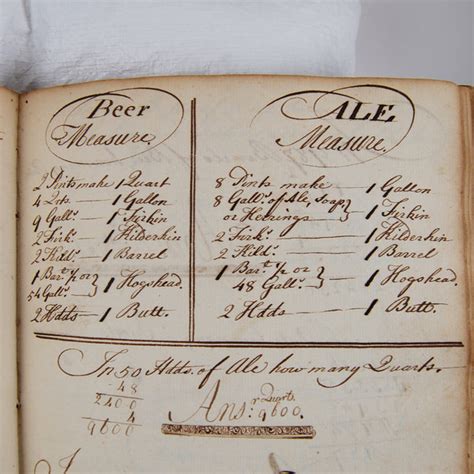 Beer
Measure.
2 Pints make 1 Quart
4 Qts 1 Gallon
9 Gallˢ. 1 Firkin
2 Firkˢ. 1 Kilderkin
2 Kildˢ. 1 Barrel
1 Barˡ. ½ or
54 Gallˢ. } 1 Hogshead.
2 Hdds 1 Butt.
ALE
Measure,
8 Pints make 1 Gallon
8 Gallˢ. of Ale, Soap
or Herrings } 1 Firkin
2 Firkˢ. 1 Kilderkin
2 Kildˢ. 1 Barrel
1 Barˡ. ½ or
48 Gallˢ. } 1 Hogshead
2 Hdds 1 Butt.
In 50 Hdds. of Ale how many Quarts.
48
2400
4
9600
Ansʳ. Quarts 9600.